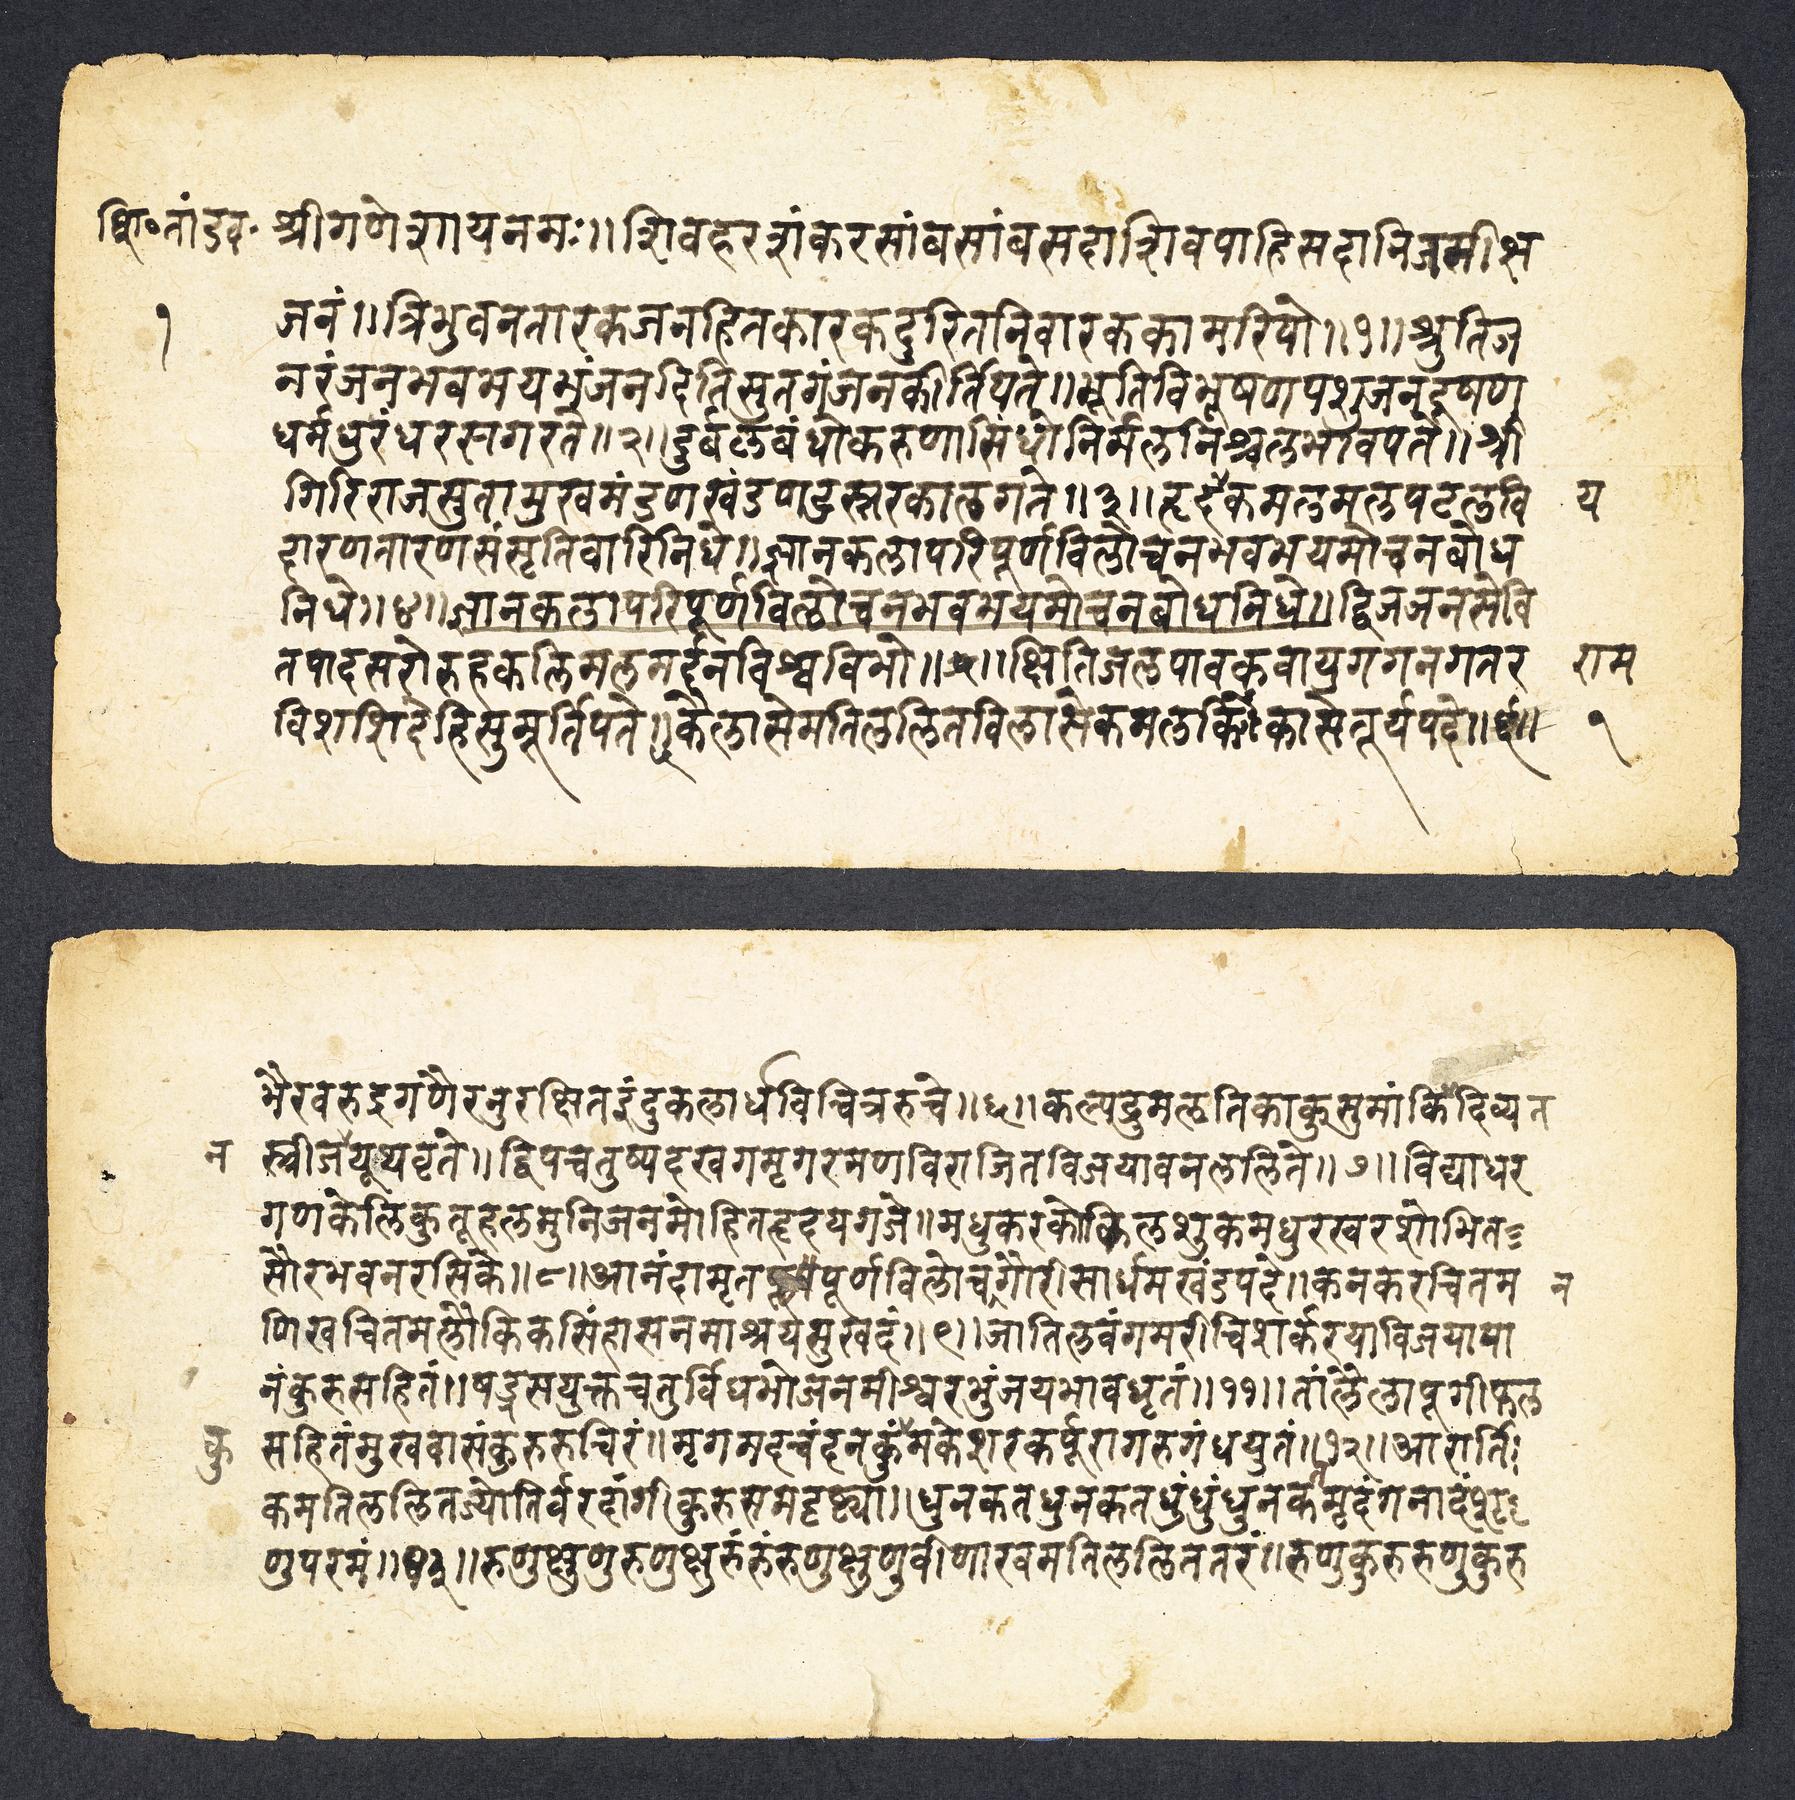 शि॰तांडव॰ श्रीगणेशायनमः॥शिवहरशंकरसांबसांबसदाशिवपाहिसदानिजमीश
१ जनं॥त्रिभुवनतारकजनहितकारकदुरितनिवारककामरिपो॥१॥श्रुतिज
नरंजनभवभयभंजनदितिसुतगंजनकीर्तिपते॥भूतिविभूषणपशुजनदूषण
धर्मधुरंधर॥२॥दुर्बलबंधोकरुणासिंधोनिर्मलनिश्चलभावपते॥श्री
गिरिराजसुतामुखमंडणखंडणदुस्तरकालगते॥३॥हृदकमलमलपटलवि य
दारणतारणसंसृतिवारिनिधे॥ज्ञानकलापरिपूर्णविलोचनभवभयमोचनबोध
निधे॥४॥ज्ञानकलापरिपूर्णविलोचनभवभयमोचनबोधनिधे॥द्विजजनसेवि
तपादसरोरुहकलिमलमर्द्दनविश्वविभो॥५॥क्षितिजलपावकवायुगगनगतर राम
विशशिदेहिसुमूर्तिपते॥कैलासेमतिललितविलासेकमलकासेतूर्यपदे॥ १
भैरवरुद्रगणैरनुरक्षितइंदुकलार्धविचित्ररुचे॥६॥कल्पद्रुमलतिकाकुसुमांकिदिव्यत
न स्त्रीजयूथवृते॥द्विपचतुष्पदखगमृगरमणविराजितविजयावनललिते॥७॥विद्याधर
गणकेलिकुतूहलमुनिजनमोहितहृदयगजे॥मधुकरकोकिलशुकमधुरस्वरशोभित
सौरभवनरसिके॥८॥आनंदामृतपूर्णविलोचगौरीसार्धमखंडपदे॥कनकरचितम न
णिखचितमलौकिकसिंहासनमाश्रयसुखदं॥९॥जातिलवंगमरीचिशर्करयाविजयापा
नंकुरुसहितं॥षड्रसयुक्तचतुर्विधभोजनमीश्वरभुंजयभावधृतं॥११॥तांलैलापूगीफल
कु सहितंमुखवासंकुरुरुचिरं॥मृगमदचंदनकुंमकेशरकर्पूरागरुगंधयुतं॥१२॥आरार्ति
कमतिललितज्योतिर्वरदांगीकुरुसमदृष्ट्या॥धुनकतधुनकतधुंधुंधुनकमृदंगनादं
णुपरमं॥१३॥रुणुक्षुणुरुणुक्षुरुंरुंरुणुक्षुणुवीणारवमतिललिततरं॥रुणुकुरुरुणुकुरु